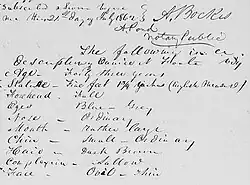 Subscribed & Sworn before
me this 21st day of July 1862
A. Bockes
Notary Public
The following is a
description
Age Forty three years
Stature Five feet (English Measure)
Forehead Full
Eyes Blue - Grey
Nose Ordinary
Mouth rather large
Chin Small - Ordinary
Hair Dark Brown
Complexion Sallow
Face Oval - Thin